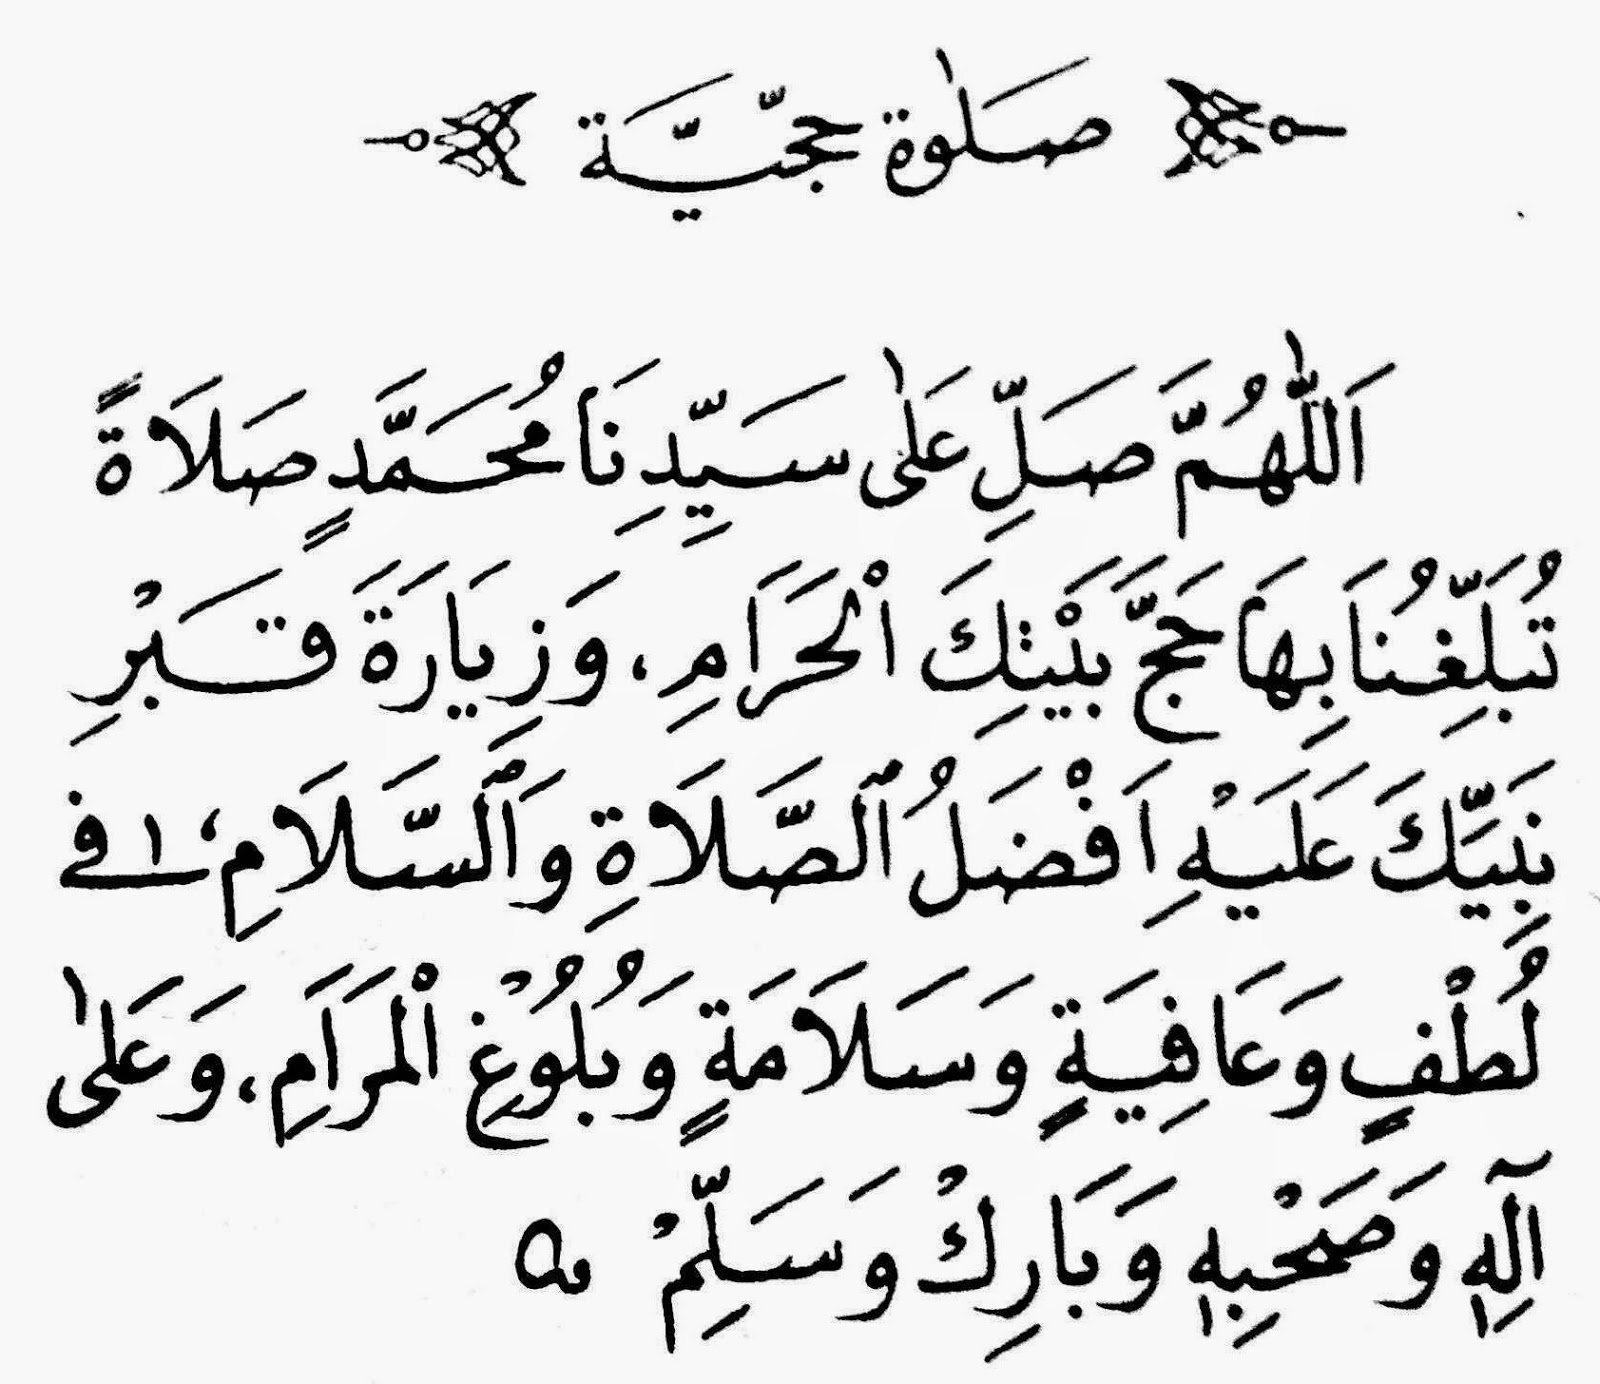 صَلٰوة حجّيّة
اَللّٰهُمَّ صَلِّ عَلٰى سَيِّدِنَا مُحَمَّدٍ صَلَاةً
تُبَلِّغُنَا بِهَا حَجَّ بَيْتِكَ الْحَرَامِ، وَزِيَارَةَ قَبْرِ
نَبِيِّكَ عَلَيْهِ اَفْضَلُ ٱلصَّلَاةِ وَٱلسَّلَامِ، فى
لُطْفٍ وَعَافِيَةٍ وَسَلَامَةٍ وَبُلُوْغِ الْمَرَامِ، وَعَلٰى
آلِهٖ وَصَحْبِهٖ وَبَارِكْ وَسَلِّمْ